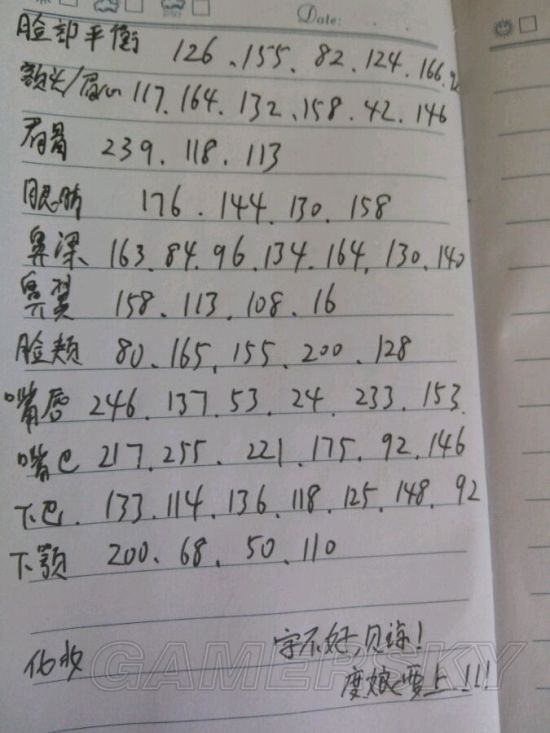 Date:
脸部平衡 126、155、82、124、166、92
额头/眉心 117、164、132、158、42、146
眉骨 239、118、113
眼睛 176、144、130、158
鼻梁 163、84、96、134、164、130、140
鼻翼 158、113、108、16
脸颊 80、165、155、200、128
嘴唇 246、137、53、24、233、153
嘴巴 217、255、221、175、92、146
下巴 133、114、136、118、125、148、92
下颚 200、68、50、110
化妆 字不好,见谅!
度娘要上!!!
GAMERSKY